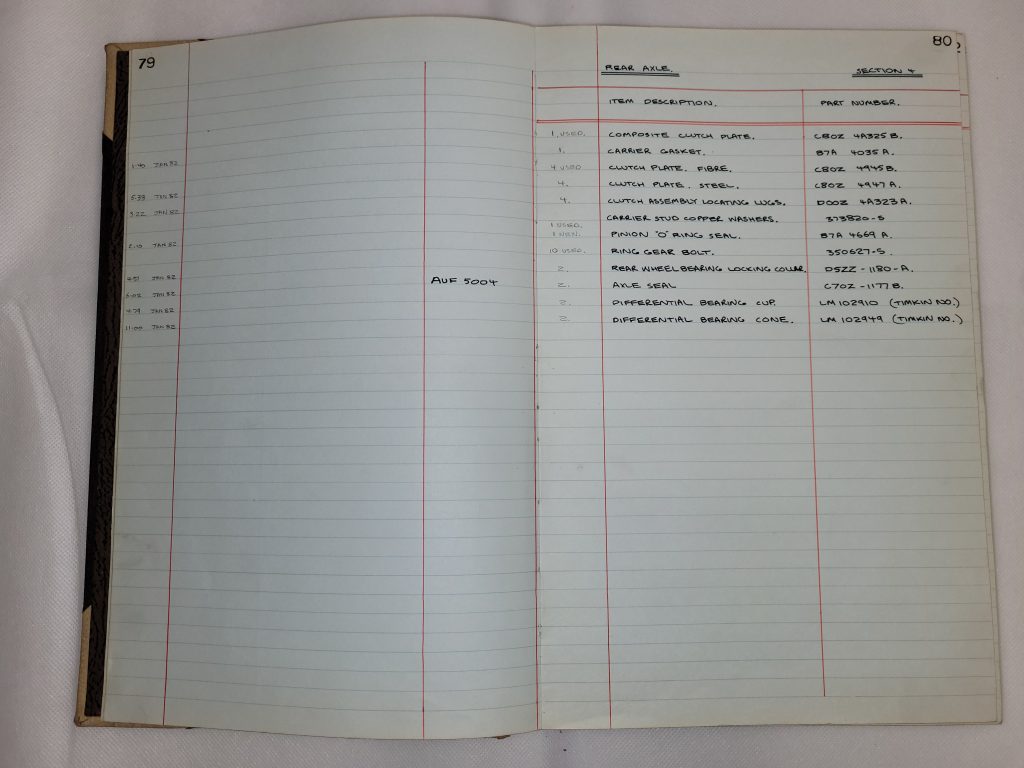 79
1.40 JAN 82
5.39 JAN 82
3.22 JAN 82
2.10 JAN 82
4.51 JAN 82
AUF 5004
5.02 JAN 82
4.79 JAN 82
11.00 JAN 82
80
REAR AXLE. SECTION 4
ITEM DESCRIPTION. PART NUMBER.
1. USED. COMPOSITE CLUTCH PLATE. C8OZ 4A325 B.
1. CARRIER GASKET. B7A 4035 A.
4 USED CLUTCH PLATE. FIBRE. C8OZ 4945 B.
4. CLUTCH PLATE. STEEL. C8OZ 4947 A.
4. CLUTCH ASSEMBLY LOCATING LUGS. DOOZ 4A323 A.
CARRIER STUD COPPER WASHERS. 373820-S
1 USED.
1 NEW. PINION "O" RING SEAL. B7A 4669 A.
10 USED. RING GEAR BOLT. 350627-S.
2. REAR WHEEL BEARING LOCKING COLLAR. D5ZZ-1180-A.
2. AXLE SEAL C7OZ-1177 B.
2. DIFFERENTIAL BEARING CUP. LM 102910 (TIMKIN NO.)
2. DIFFERENTIAL BEARING CONE. LM 102949 (TIMKIN NO.)